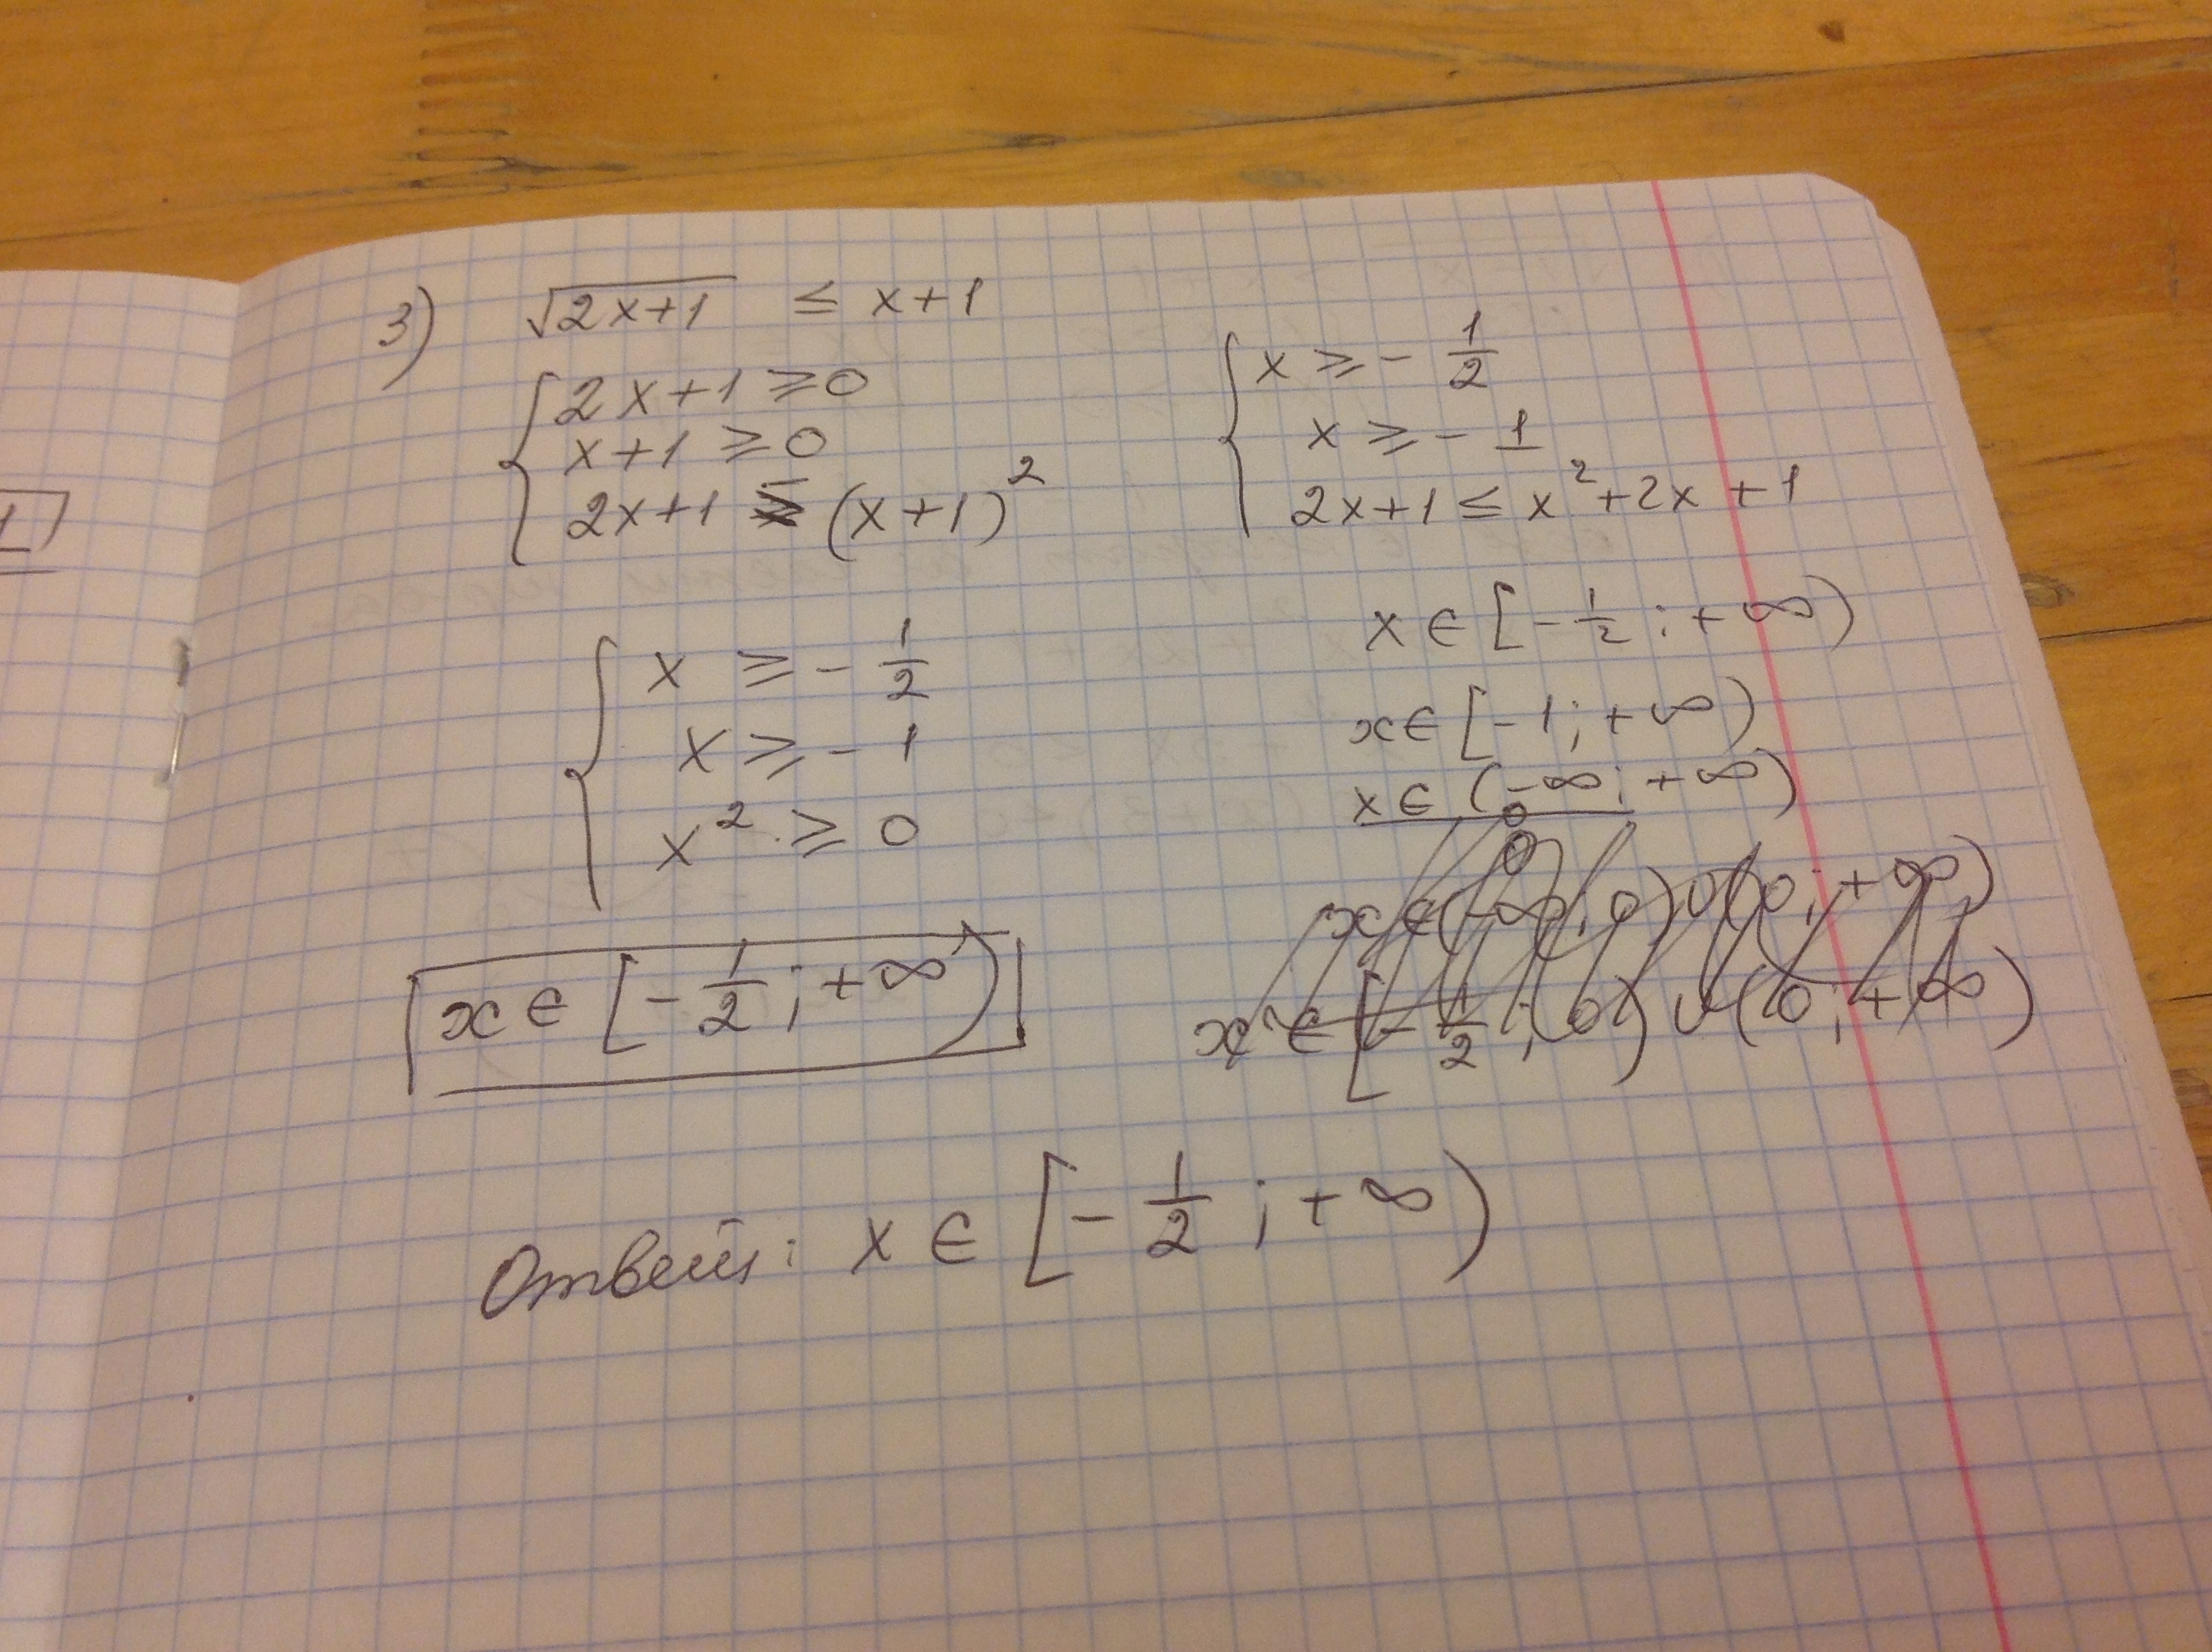 3) √2x+1 ≤ x+1
{ 2x+1 ≥ 0
x+1 ≥ 0
2x+1 ≤ (x+1)²
{ x ≥ - 1/2
x ≥ - 1
2x+1 ≤ x²+2x+1
{ x ≥ - 1/2
x ≥ - 1
x² ≥ 0
x ∈ [- 1/2 ; +∞)
x ∈ [-1; +∞)
x ∈ (-∞; +∞)
x ∈ (-∞; 0) ∪ (0; +∞)
x ∈ [- 1/2 ; 0) ∪ (0; +∞)
x ∈ [- 1/2 ; +∞)
Ответ: x ∈ [- 1/2 ; +∞)
1